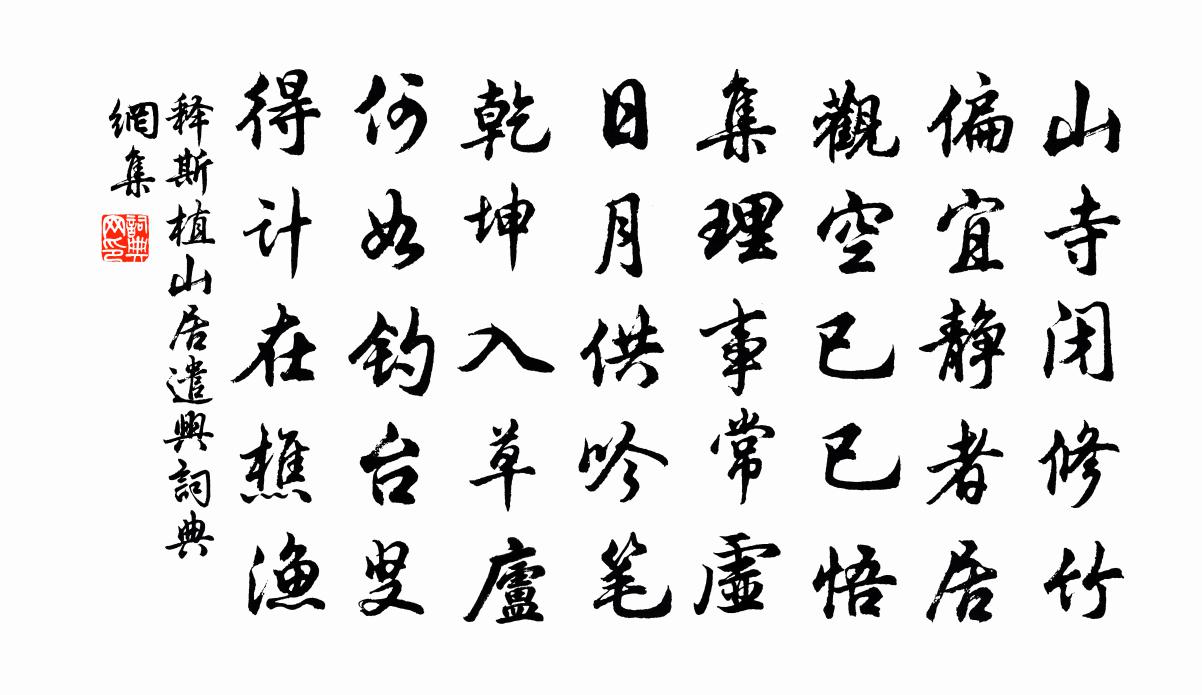 山寺闭修竹
偏宜静者居
觀空已已悟
集理事常虛
日月供吟笔
乾坤入草廬
何如钓台叟
得计在樵漁
释斯植山居遣興詞典
網集
詞典
网印